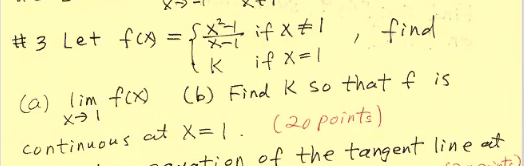 # 3 Let f(x) = { x²-1 / x-1 if x ≠ 1 , find
K if x = 1
(a) lim x→1 f(x) (b) Find K so that f is
continuous at x = 1. (20 points)
of the tangent line at